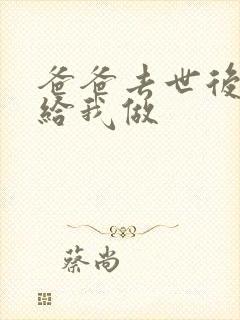 爸爸去世後
給我做
蔡尚